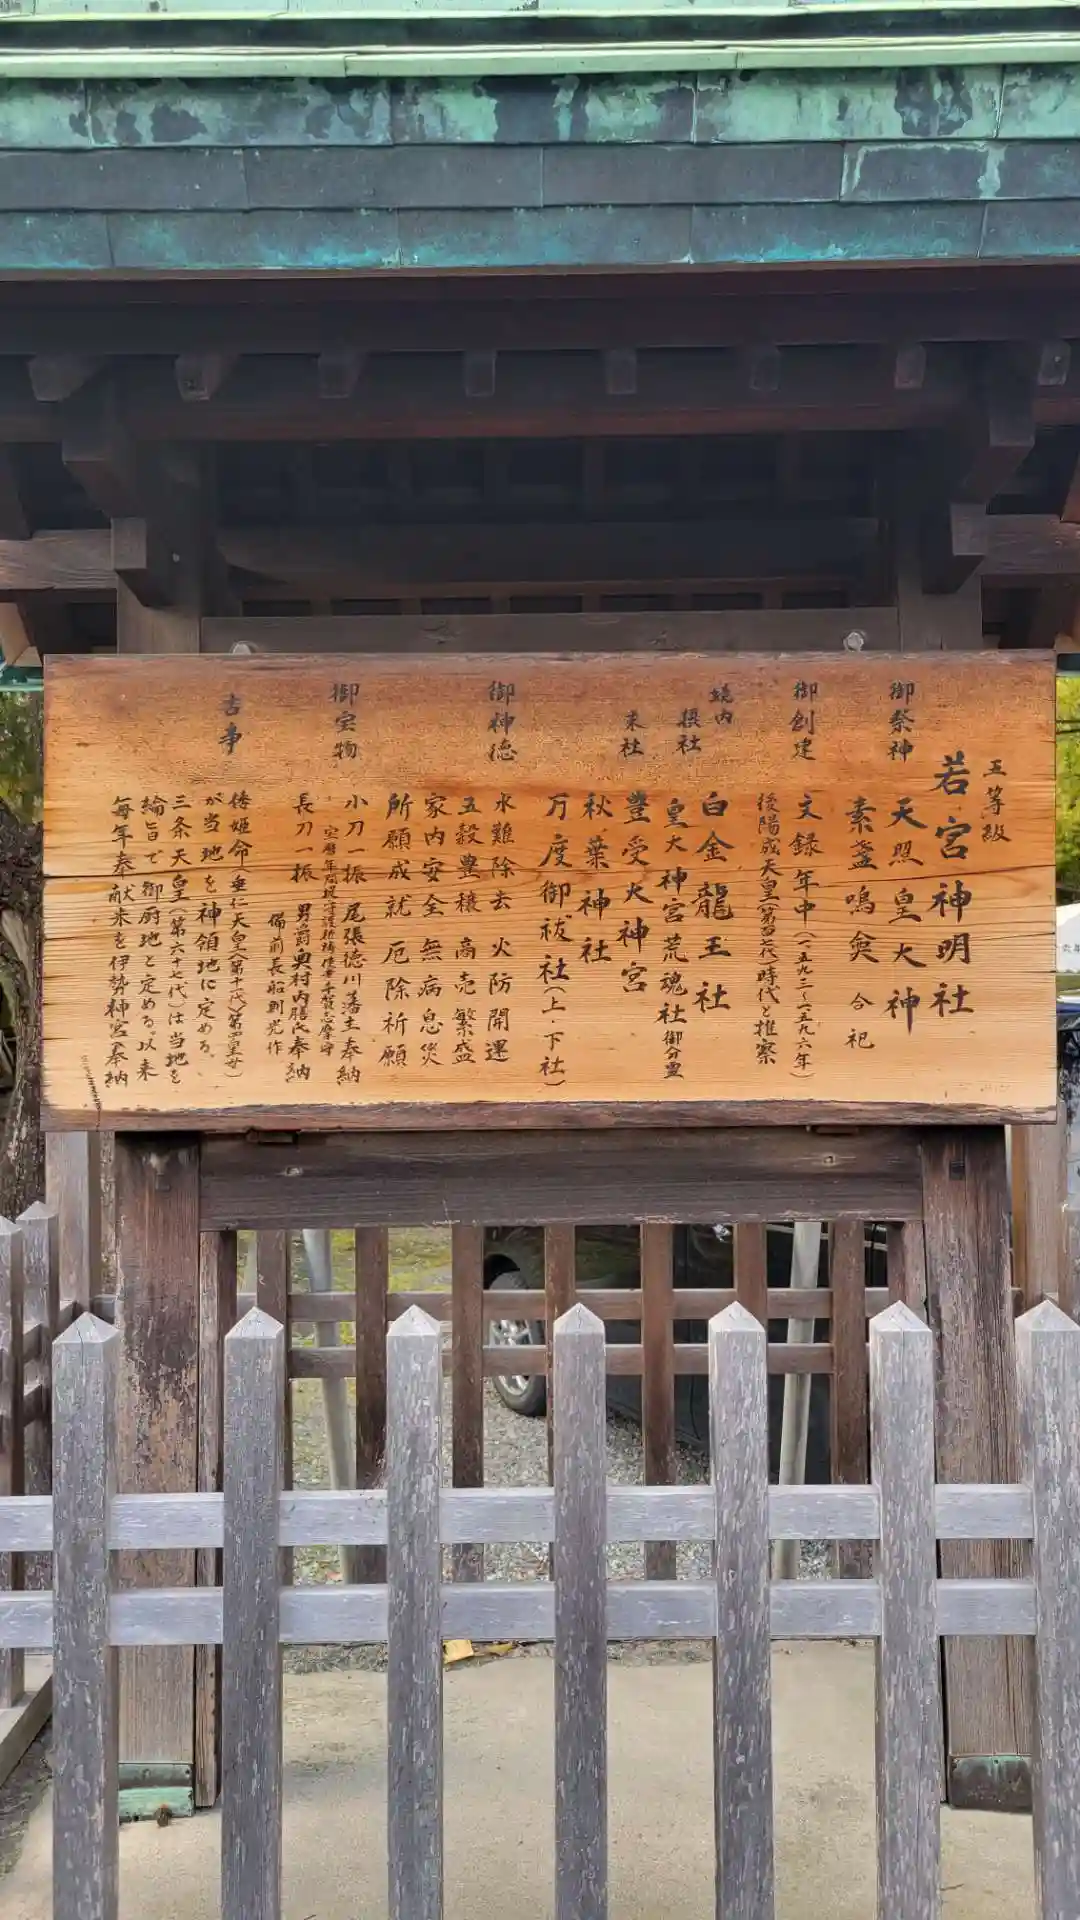 五等級
若宮神明社
御祭神
天照皇大神
素盞鳴奠 合祀
御創建
文録年中(一五九三~一五九六年)
後陽成天皇(第百七代)時代と推察
境内
摂社
白金龍王社
皇大神宮荒魂社 御分霊
末社
豊受大神宮
秋葉神社
万度御祓社(上・下社)
御神徳
水難除去 火防開運
五穀豊穣 商売繁盛
家内安全 無病息災
所願成就 厄除祈願
御宝物
小刀一振 尾張徳川藩主奉納
長刀一振 男爵奥村内膳氏奉納
備前長船則光作
古事
倭姫命(垂仁天皇(第十一代)第四皇女)
が当地を神領地に定める。
三条天皇(第六十七代)は当地を
綸旨で御厨地と定める。以来
毎年奉献米を伊勢神宮へ奉納